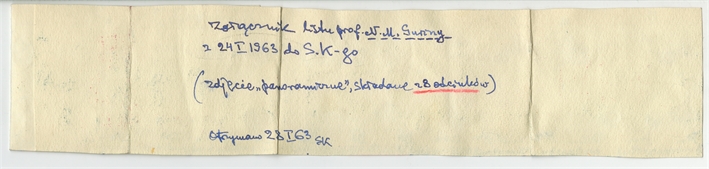 Załącznik listu prof. N. M. Guriny
z 24 I 1963 do S.K-go
(zdjęcie „panoramiczne”, składane z 8 odcinków)
Otrzymano 28 I 63 SK